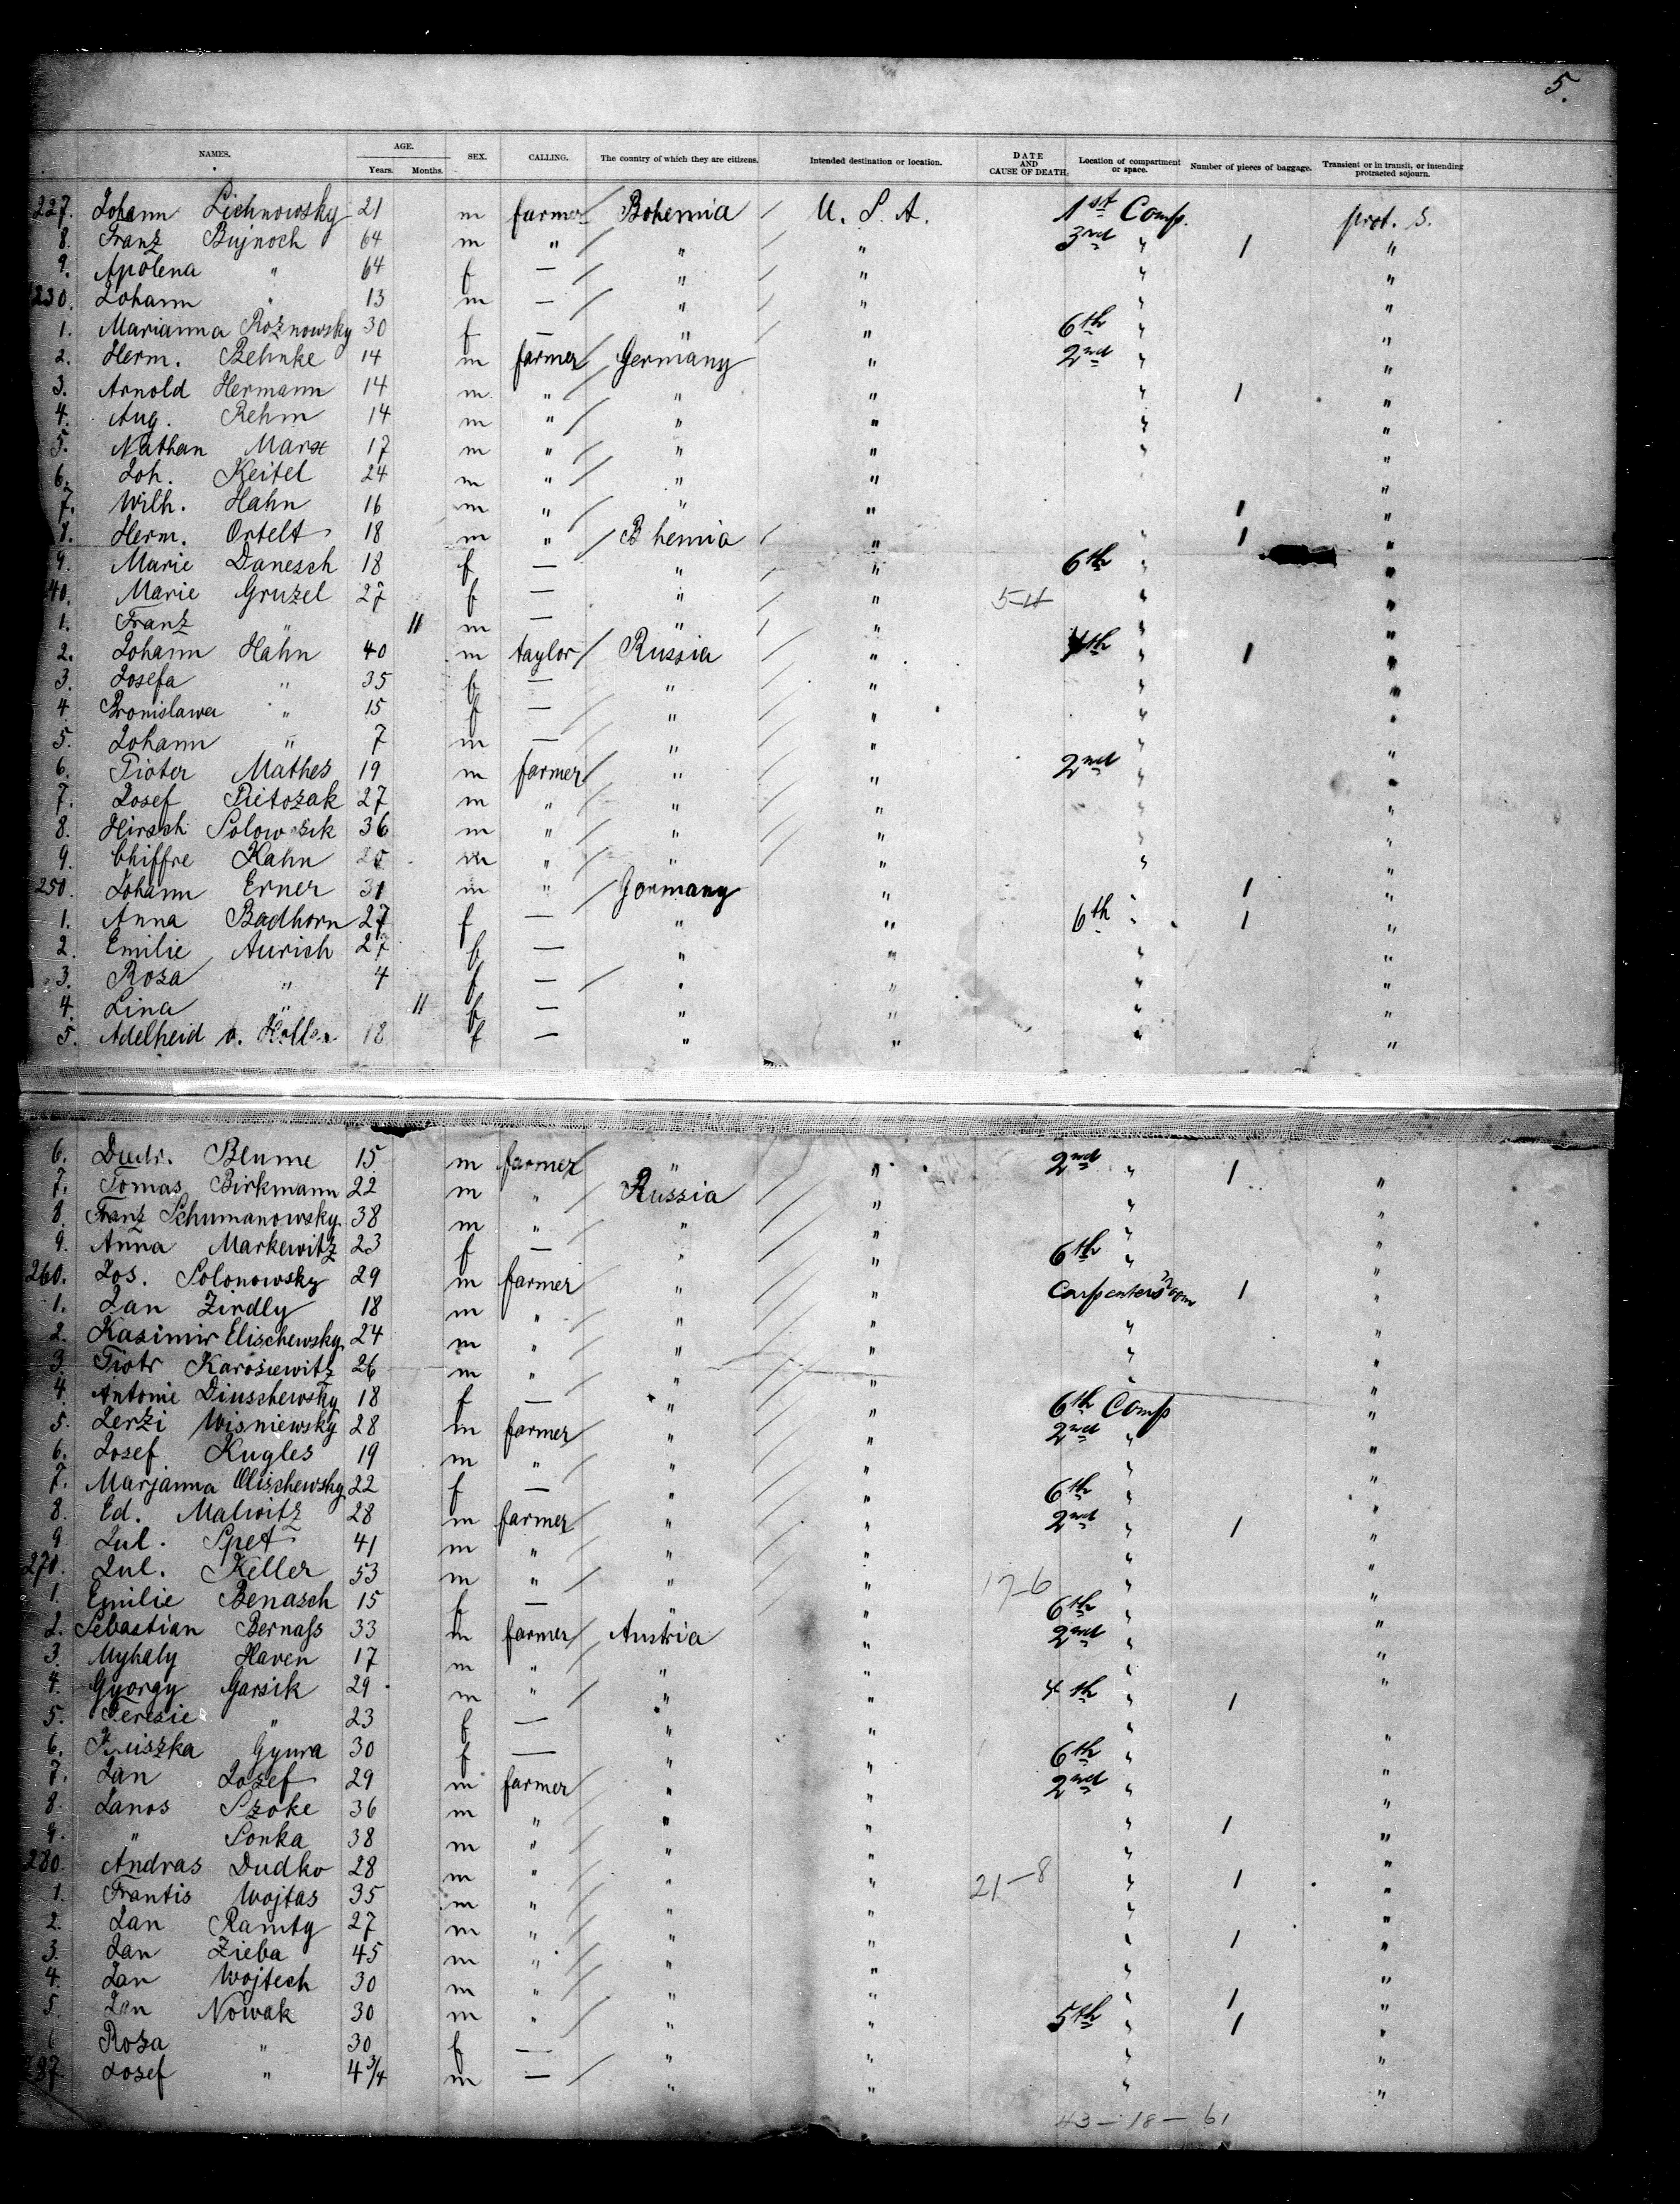 5.
NAMES. AGE. Years. Months. SEX. CALLING. The country of which they are citizens. Intended destination or location. DATE AND CAUSE OF DEATH. Location of compartment or space. Number of pieces of baggage. Transient or in transit, or intending protracted sojourn.
227. Johann Lichnowsky 21 m farmer / Bohemia / U. S. A. 1st Comp. prot. s.
8. Franz Bujnoch 64 m " / " / " 3rd " 1 "
9. Apolena " 64 f — / " / " " "
230. Johann " 13 m — / " / " " "
1. Marianna Roznowsky 30 f — / " / " 6th " "
2. Herm. Behnke 14 m farmer / Germany " 2nd " "
3. Arnold Hermann 14 m " / " " " 1 "
4. Aug. Rehm 14 m " / " " " "
5. Nathan Marx 17 m " / " " " "
6. Joh. Keitel 24 m " / " " "
7. Wilh. Hahn 16 m " / " " 1 "
8. Herm. Ortelt 18 m " / B hemia / " " 1 "
9. Marie Danesch 18 f — " / " 6th " "
40. Marie Gruzel 27 f — " / " 5-11 " "
1. Franz " 11 m — " / " " "
2. Johann Hahn 40 m taylor / Russia / " 4th " 1 "
3. Josefa " 35 f — " / " " "
4. Bronislawa " 15 f — / " / " " "
5. Johann " 7 m — / " / " " "
6. Pioter Mathes 19 m farmer / " / " 2nd " "
7. Josef Pietozak 27 m " / " / " " "
8. Hirsch 36 m " / " / " " "
9. Chiffre Kahn m " / " / " " "
250. Johann Erner 31 m " / Germany " " 1 "
1. Anna Badhorn 27 f — " " 6th " 1 "
2. Emilie Aurich 27 f — " " " "
3. Rosa " 4 f — / " " " "
4. Lina " 11 f — " " " "
5. Adelheid v. 18 f — " " " "
6. Blume 15 m farmer / " / " 2nd " 1 "
7. Tomas Birkmann 22 m " / Russia / " " "
8. Franz Schumanowsky 38 m " / " / " " "
9. Anna Markewitz 23 f — " / " 6th " "
260. Jos. Solonowsky 29 m farmer / " / " Carpenters room 1 "
1. Jan Zirdly 18 m " / " / " " "
2. Kasimir Elischewsky 24 m " / " / " " "
3. Piotr Karosiewitz 26 m " / " / " " "
4. Antonie Diuschewsky 18 f — " / " 6th Comp "
5. Jerzi Wisniewsky 28 m farmer / " / " 2nd " "
6. Josef Kugles 19 m " / " / " " "
7. Marjanna Olischewsky 22 f — " / " 6th " "
8. Ed. Malwitz 28 m farmer / " / " 2nd " 1 "
9 Jul. Spet 41 m " / " / " " "
270. Jul. Keller 53 m " / " / " 17-6 " "
1. Emilie Benasch 15 f — " / " 6th " "
2. Sebastian Bernass 33 m farmer / Austria " 2nd " "
3. Myhaly Haven 17 m " / " " " "
4. Gyorgy Garsik 29 m " / " " 4th " 1
5. Teresie " 23 f — " " " "
6. Gyura 30 f — " " 6th " "
7. Jan Josef 29 m farmer / " " 2nd " "
8. Janos Szoke 36 m " / " " " 1 "
9. " Sonka 38 m " / " " " "
280. Andras Dudko 28 m " / " " 21-8 " 1 "
1. Frantis Wojtas 35 m " / " " " "
2. Jan Ramty 27 m " / " " " 1 "
3. Jan Zieba 45 m " / " " " "
4. Jan Wojtech 30 m " / " " " 1 "
5. Jan Nowak 30 m " / " " 5th " 1 "
6 Roza " 30 f — " " " "
87. Josef " 4 3/4 m — / " " " "
43 - 18 - 61